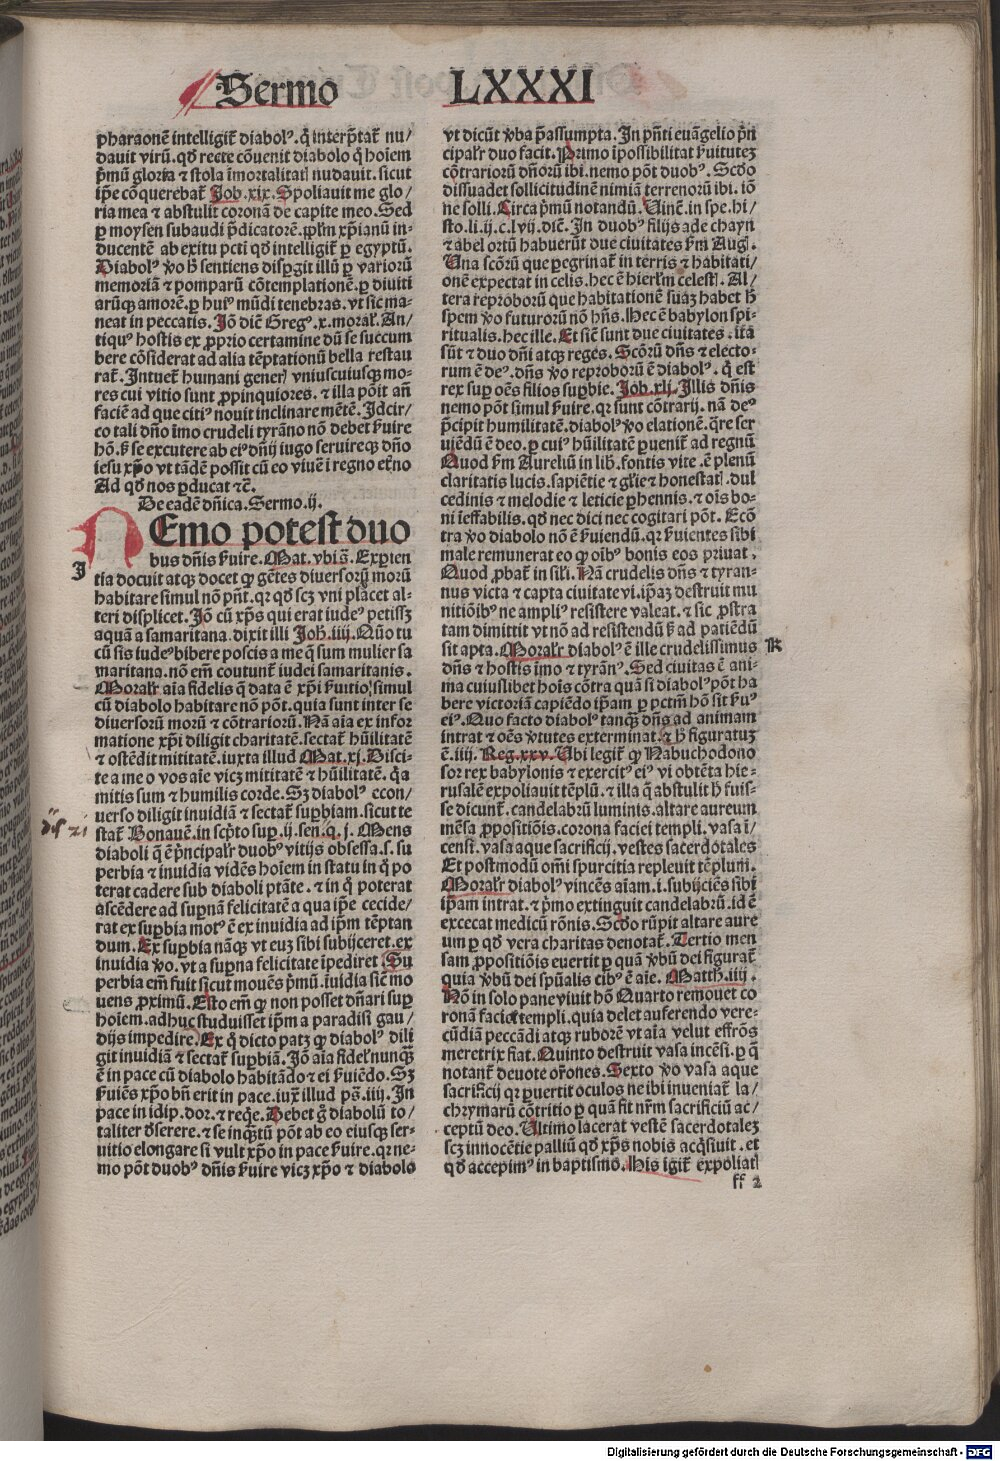 Sermo LXXXI
pharaonē intelligit̄ diabolꝰ. q̇ interp̄tat̄ nu/
dauit virū. qd̓ recte cōuenit diabolo q̇ hoīem
p̄mū gloria ⁊ stola īmortalitat̄ nudauit. sicut
ip̄e cōquerebat̄ Job. xix. Spoliauit me glo/
ria mea ⁊ abstulit coronā de capite meo. Sed
ꝑ moysen subaudi p̄dicatorē. ꝓlm̄ xp̄ianū in-
ducentē ab exitu pctī qd̓ intelligit̄ ꝑ egyptū.
Diabolꝰ ꝟo h̓ sentiens disꝑgit illū ꝑ variorū
memoriā ⁊ pomparū cōtemplationē. ꝑ diuiti
arūqꝫ amorē. ꝑ huiꝰ mūdi tenebras. vt sic ma-
neat in peccatis. Jō diē Greg̓. x. moral̓. An/
tiquꝰ hostis ex ꝓprio certamine dū se succum
bere cōsiderat ad alia tēptationū bella restau
rat̄. Intuet̄ humani gener̄ vniuscuiusqꝫ mo-
res cui vitio sunt ꝓpinquiores. ⁊ illa pōit añ
faciē ad que citiꝰ nouit inclinare mētē. Idcir/
co tali dño īmo crudeli tyrāno nō debet ẜuire
hō. ẜ se excutere ab eiꝰ dñij iugo seruireqꝫ dño
iesu xp̄o vt tādē possit cū eo viuē i regno et̓no
Ad qd̓ nos ꝑducat ⁊c̄.
De eadē dñica. Sermo. ij.
NEmo potest duo
bus dñis ẜuire. Mat. vbi s̄. Exꝑien
J
tia docuit atqꝫ docet ꝙ gētes diuersorū morū
habitare simul nō pn̄t. qꝛ qd̓ scꝫ vni placet al-
teri displicet. Jō cū xp̄s qui erat iudeꝰ petissꝫ
aquā a samaritana. dixit illi Joh̄. iiij. Quō tu
cū sis iudeꝰ bibere poscis a me q̄ sum mulier sa
maritana. nō em̄ coutunt̄ iudei samaritanis.
Moral̓r aīa fidelis q̄ data ē xp̄i ẜuitio, simul
cū diabolo habitare nō pōt. quia sunt inter se
diuersorū morū ⁊ cōtrariorū. Nā aīa ex infor
matione xp̄i diligit charitatē. sectat̄ hūilitatē
⁊ ostēdit mititatē. iuxta illud Mat. xj. Disci-
te a me o vos aīe vicꝫ mititatē ⁊ hūilitatē. q̄a
mitis sum ⁊ humilis corde. Sꝫ diabolꝰ econ/
uerso diligit inuidiā ⁊ sectat̄ suꝑbiam. sicut te
stat̄ Bonauē. in scp̄to suꝑ. ij. sen. q. j. Mens
diaboli q̄ ē p̄ncipalr̄ duobꝰ vitijs obsessa. s. su
perbia ⁊ inuidia vidēs hoīem in statu in q̇ po
terat cadere sub diaboli ptāte. ⁊ in q̇ poterat
ascēdere ad supnā felicitatē a qua ip̄e cecide/
rat ex suꝑbia motꝰ ē ex inuidia ad ip̄m tēptan
dum. Ex suꝑbia nāqꝫ vt euꝫ sibi subijceret. ex
inuidia ꝟo. vt a suꝑna felicitate īpediret. Su
perbia em̄ fuit sicut mouēs p̄mū. īuidia sicē mo
uens ꝓximū. Esto em̄ ꝙ non posset dñari suꝑ
hoīem. adhuc studuisset ip̄m a paradisi gau/
dijs impedire. Ex q̇ dicto patꝫ ꝙ diabolꝰ dili
git inuidiā ⁊ sectat̄ suꝑbiā. Jō aīa fidel̓ nunqꝫ̄
ē in pace cū diabolo habitādo ⁊ ei ẜuiēdo. Sꝫ
ẜuiēs xp̄o bn̄ erit in pace. iux̄ illud ps̄. iiij. In
pace in idip. dor. ⁊ req̄e. Debet g̊ diabolū to/
taliter dr̄serere. ⁊ se inq̄tū pōt ab eo eiusqꝫ ser-
uitio elongare si vult xp̄o in pace ẜuire. qꝛ ne-
mo pōt duobꝰ dñis ẜuire vicꝫ xp̄o ⁊ diabolo
vt dicūt ꝟba p̄assumpta. In pn̄ti euāgelio p̄n
cipalr̄ duo facit. Primo īpossibilitat ẜuitutez
cōtrariorū dñorū ibi. nemo pōt duobꝰ. Scd̓o
dissuadet sollicitudinē nimiā terrenorū ibi. iō
ne solli. Circa p̄mū notandū. Uincē. in spe. hi/
sto. li. ij. c. lvij. diē. In duobꝰ filijs ade chayn
⁊ abel ortū habuerūt due ciuitates ẜm Aug̓.
Una scōrū que ꝑegrinat̄ in terris ⁊ habitati/
onē expectat in celis. hec ē hierl̓m celest̄. Al/
tera reproborū que habitationē suāꝫ habet h̓
spem ꝟo futurorū nō hn̄s. Hec ē babylon spi-
ritualis. hec ille. Et sicē sunt due ciuitates. ita
sūt ⁊ duo dñi atqꝫ reges. Scōrū dñs ⁊ electo-
rum ē deꝰ. dñs ꝟo reproborū ē diabolꝰ. q̇ est
rex suꝑ oēs filios suꝑbie. Job. xli. Illis dñis
nemo pōt simul ẜuire. qꝛ sunt cōtrarij. nā deꝰ
p̄cipit humilitatē. diabolꝰ ꝟo elationē. q̄re ser
uiēdū ē deo. ꝑ cuiꝰ hūilitatē ꝑuenit̄ ad regnū
Quod ẜm Aureliū in lib̓. fontis vite. ē plenū
claritatis lucis. sapiētie ⁊ gl̓ie ⁊ honestat̄. dul
cedinis ⁊ melodie ⁊ leticie ꝑhennis. ⁊ oīs bo-
ni ieffabilis. qd̓ nec dici nec cogitari pōt. Ecō
tra ꝟo diabolo nō ē ẜuiendū. qꝛ ẜuientes sibi
male remunerat eo ꝙ oībꝰ bonis eos priuat.
Quod ꝓbat̄ in sil̓i. Nā crudelis dñs ⁊ tyran-
nus victa ⁊ capta ciuitate vi. ip̄aꝫ destruit mu
nitiōibꝰ ne ampliꝰ resistere valeat. ⁊ sic ꝓstra
tam dimittit vt nō ad resistendū ẜ ad patiēdū
sit apta. Moral̓r diabolꝰ ē ille crudelissimus
K
dñs ⁊ hostis īmo ⁊ tyrānꝰ. Sed ciuitas ē ani-
ma cuiuslibet hoīs cōtra quā si diabolꝰ pōt ha
bere victoriā capiēdo ip̄am ꝑ pctm̄ hō sit ẜuꝰ
eiꝰ. Quo facto diabolꝰ tanqꝫ̄ dñs ad animam
intrat ⁊ oēs ꝟtutes exterminat. ⁊ h̓ figuratuꝫ
ē. iiij. Reg. xxv. Ubi legit̄ ꝙ Nabuchodono
sor rex babylonis ⁊ exercitꝰ eiꝰ vi obtēta hie-
rusalē expoliauit tēplū. ⁊ illa q̄ abstulit h̓ fuis-
se dicunt̄. candelabrū luminis. altare aureum
mēsa ꝓpositiōis. corona faciei templi. vasa ī/
censī. vasa aque sacrificij. vestes sacerdotales
Et postmodū om̄i spurcitia repleuit tēplum.
Moral̓r diabolꝰ vincēs aīam. i. subijciēs sibi
ip̄am intrat. ⁊ p̄mo extinguit candelabrū. id ē
excecat medicū rōnis. Scd̓o rūpit altare aure
um ꝑ qd̓ vera charitas denotat̄. Tertio men
sam ꝓpositiōis euertit ꝑ quā ꝟbū dei figurat̄
quia ꝟbū dei spūalis cibꝰ ē aīe. Matth. iiij.
Nō in solo pane viuit hō Quarto remouet co
ronā faciei templi. quia delet auferendo vere-
cūdiā peccādi atqꝫ ruborē vt aīa velut effrōs
meretrix fiat. Quinto destruit vasa incēsi. ꝑ q̄
notant̄ deuote or̄ones. Sexto ꝟo vasa aque
sacrificij qꝛ ꝑuertit oculos ne ibi inueniat̄ la/
chrymarū cōtritio ꝑ quā fit nr̄m sacrificiū ac/
ceptū deo. Ultimo lacerat vestē sacerdotaleꝫ
scꝫ innocētie palliū qd̓ xp̄s nobis acq̇siuit. et
qd̓ accepimꝰ in baptismo. His igit̄ expoliat̄
ff 2
Digitalisierung gefördert durch die Deutsche Forschungsgemeinschaft - DFG